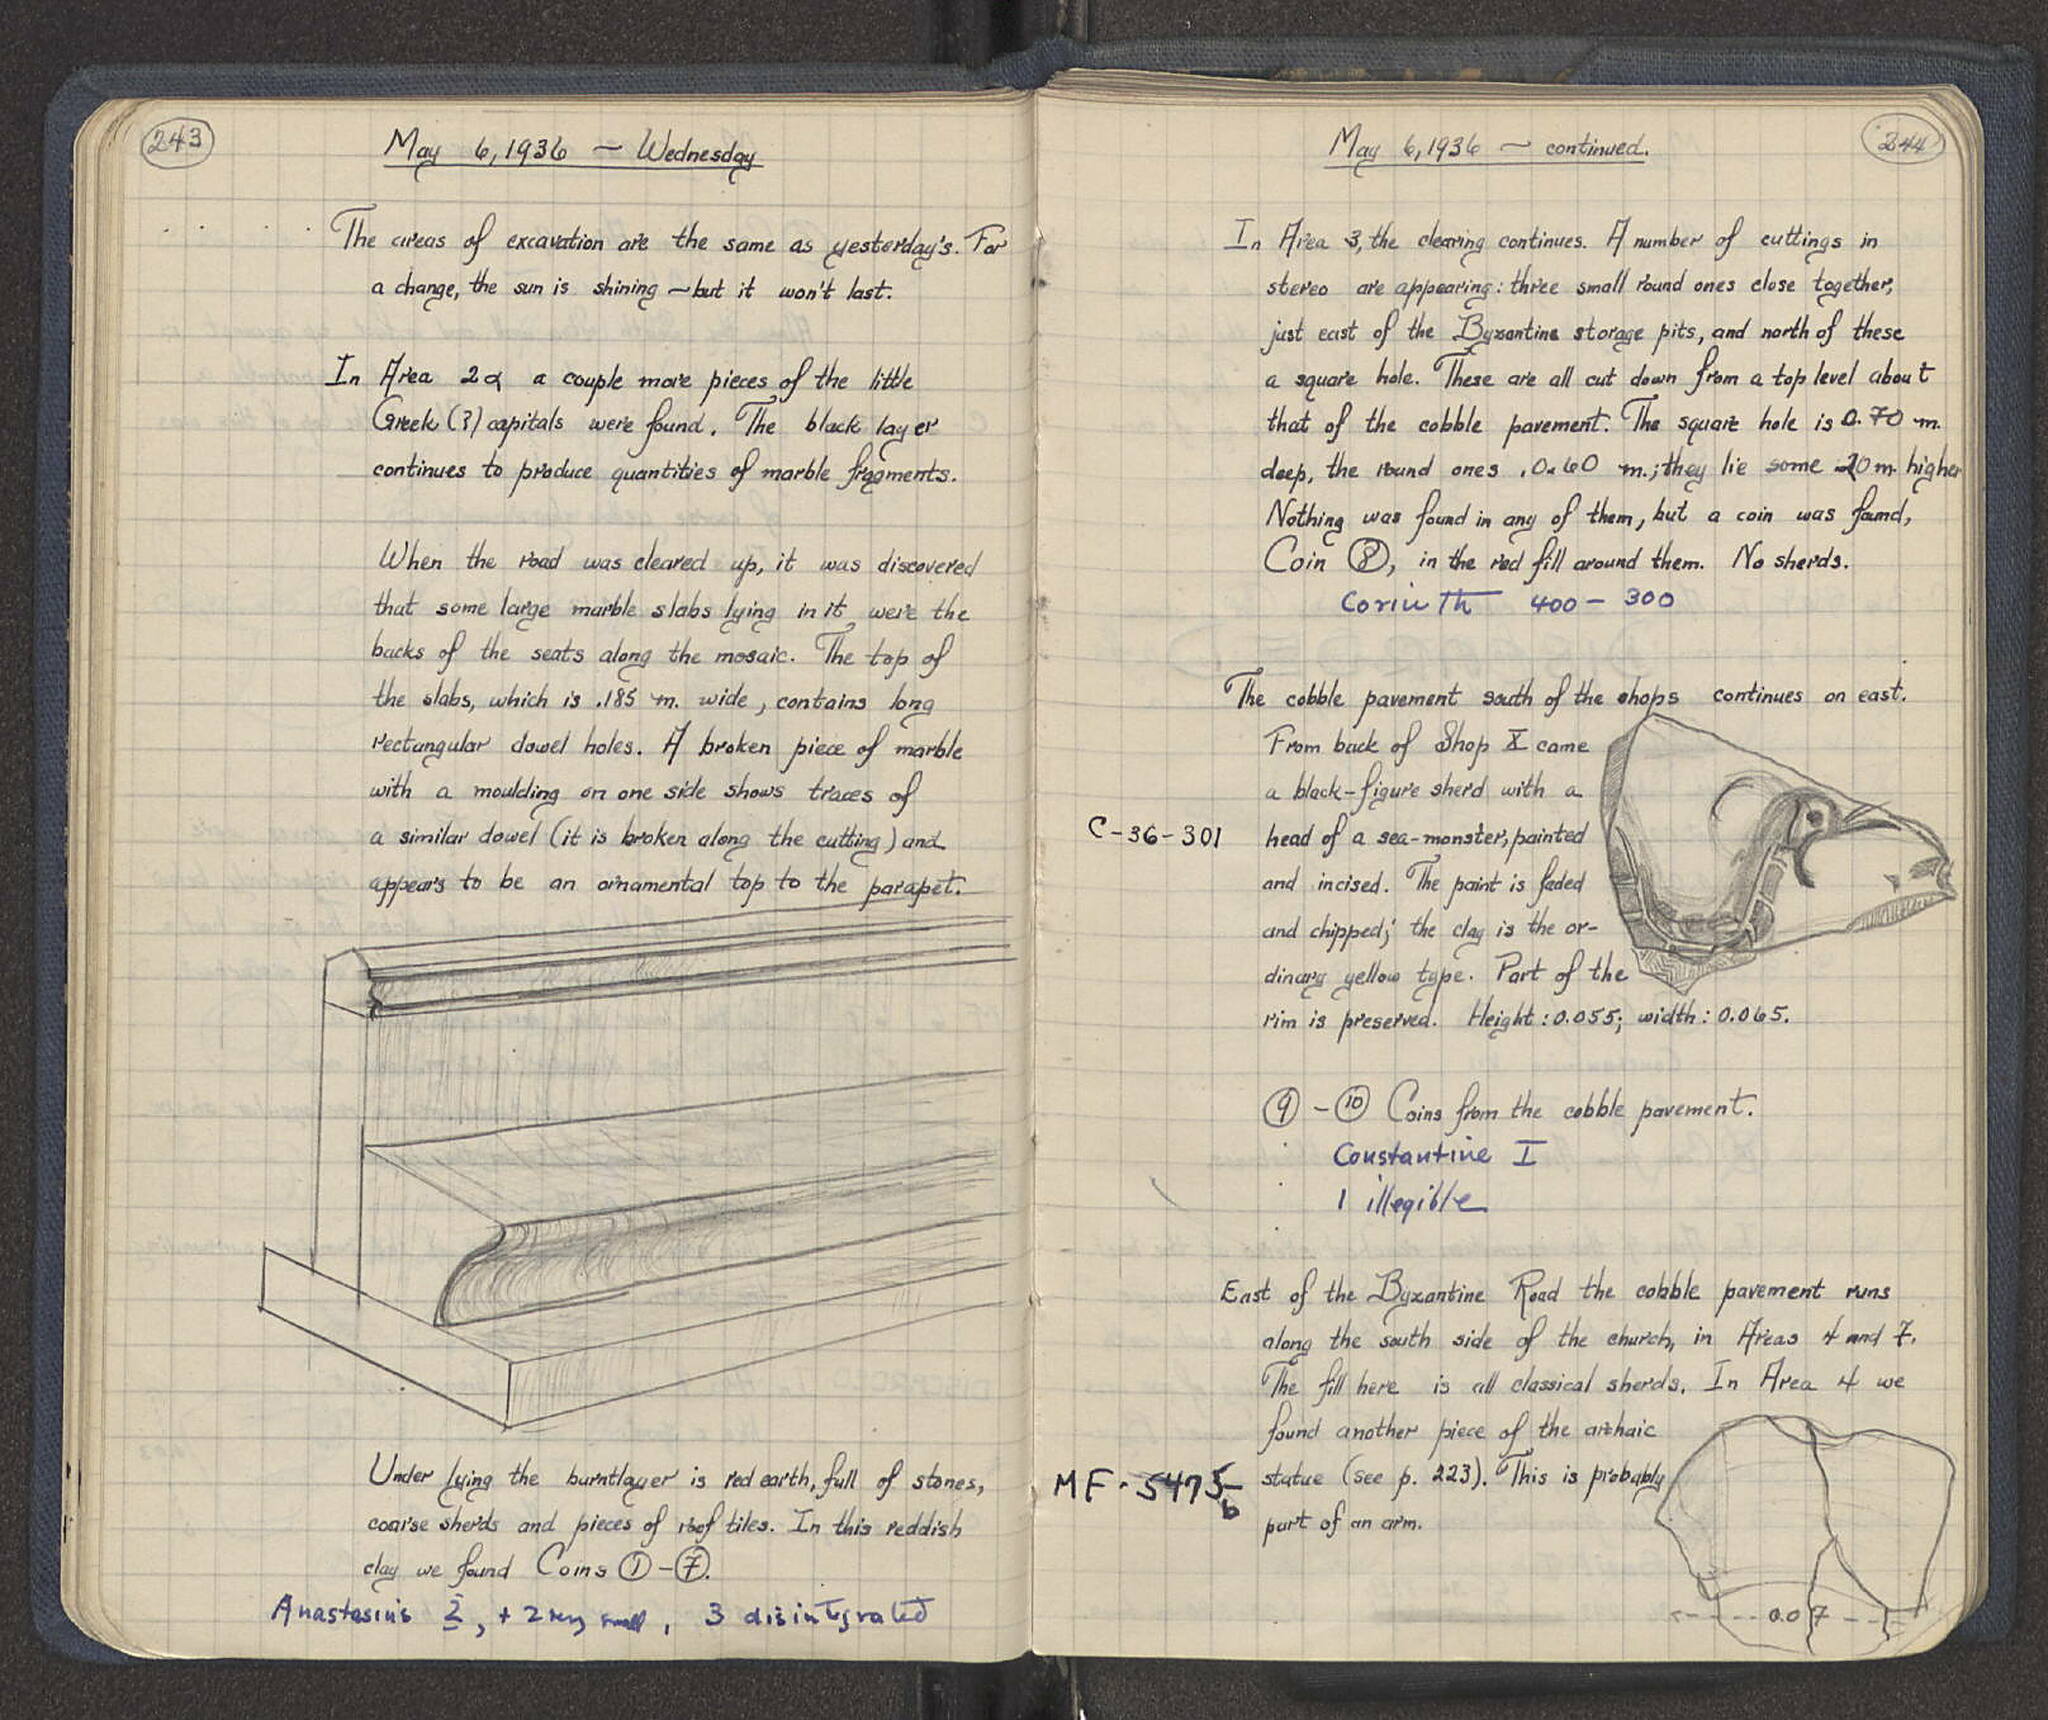 243
May 6, 1936 ~ Wednesday
The areas of excavation are the same as yesterday's. For
a change, the sun is shining ~ but it won't last.
In Area 2α a couple more pieces of the little
Greek (?) capitals were found. The black layer
continues to produce quantities of marble fragments.
When the road was cleared up, it was discovered
that some large marble slabs lying in it were the
backs of the seats along the mosaic. The top of
the slabs, which is .185 m. wide, contains long
rectangular dowel holes. A broken piece of marble
with a moulding on one side shows traces of
a similar dowel (it is broken along the cutting) and
appears to be an ornamental top to the parapet.
Under lying the burnt layer is red earth, full of stones,
coarse sherds and pieces of roof tiles. In this reddish
clay we found Coins ① - ⑦.
Anastasius, + 2 very small, 3 disintegrated
244
May 6, 1936 ~ continued.
In Area 3, the clearing continues. A number of cuttings in
stereo are appearing: three small round ones close together,
just east of the Byzantine storage pits, and north of these
a square hole. These are all cut down from a top level about
that of the cobble pavement. The square hole is 0.70 m.
deep, the round ones .0.60 m.; they lie some .20 m. higher
Nothing was found in any of them, but a coin was found,
Coin ⑧, in the red fill around them. No sherds.
Corinth 400 - 300
The cobble pavement south of the shops continues on east.
From back of Shop X came
a black-figure sherd with a
C-36-301 head of a sea-monster, painted
and incised. The paint is faded
and chipped; the clay is the or-
dinary yellow type. Part of the
rim is preserved. Height: 0.055; width: 0.065.
⑨ - ⑩ Coins from the cobble pavement.
Constantine I
1 illegible
East of the Byzantine Road the cobble pavement runs
along the south side of the church, in Areas 4 and 7.
The fill here is all classical sherds. In Area 4 we
found another piece of the archaic
MF-5475b statue (see p. 223). This is probably
part of an arm.
0.07